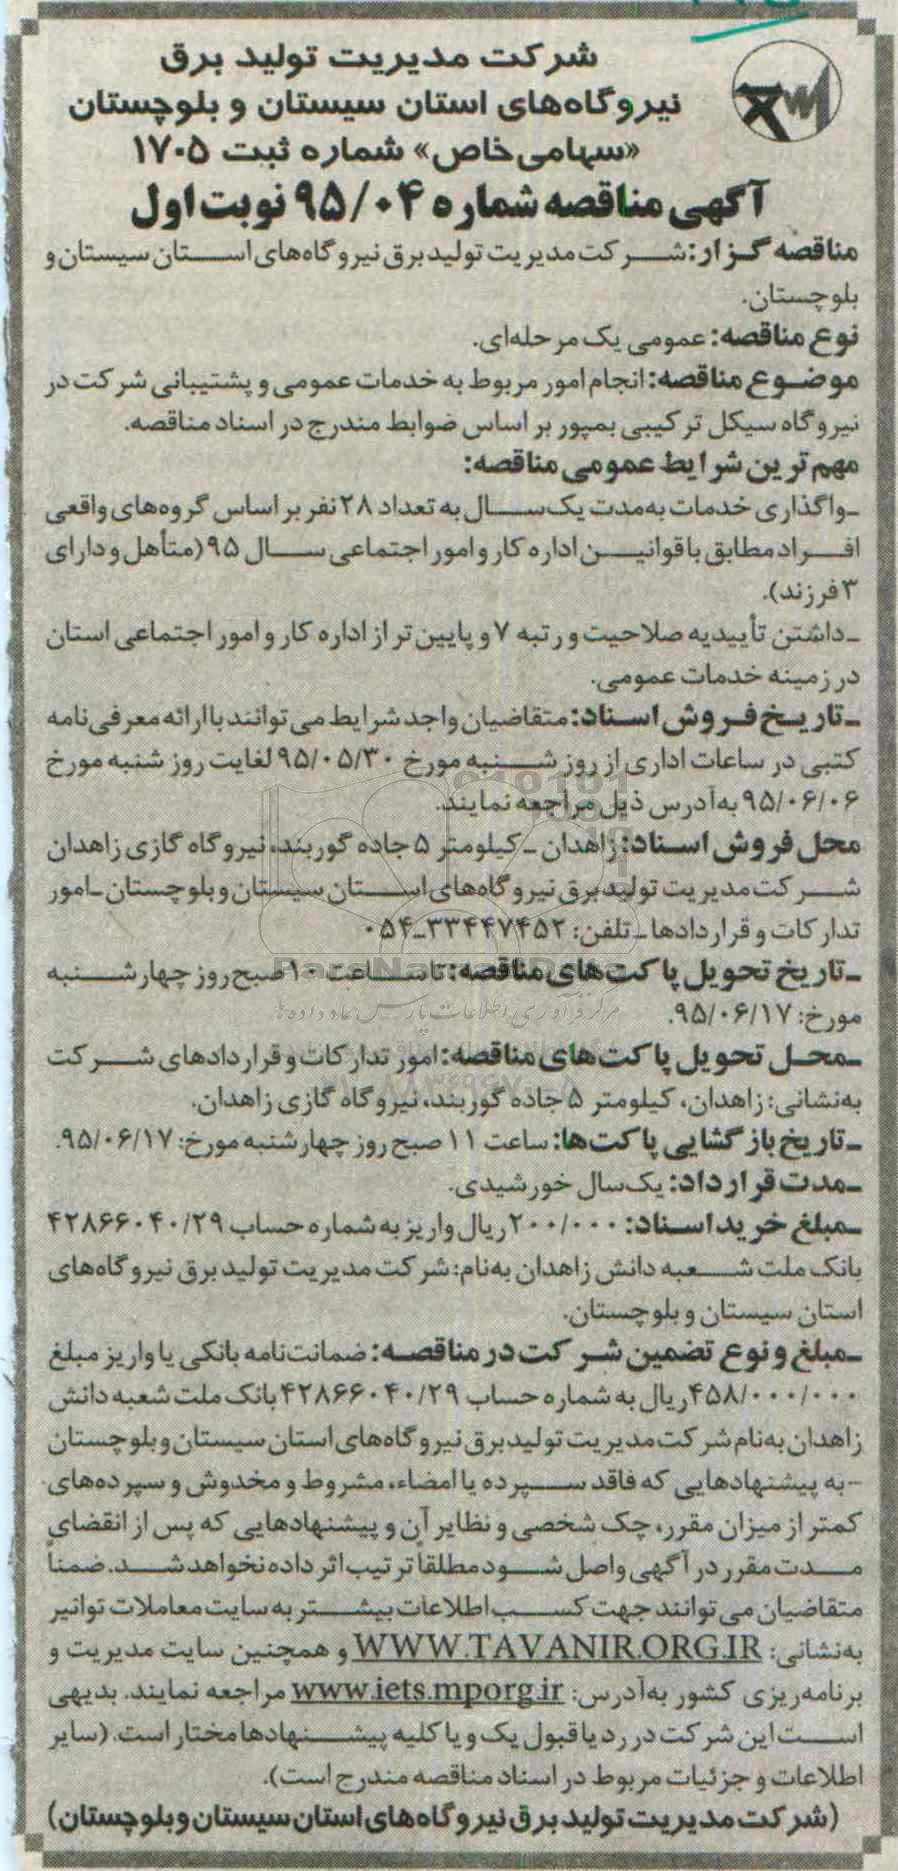 شرکت مدیریت تولید برق
نیروگاه‌های استان سیستان و بلوچستان
«سهامی خاص» شماره ثبت ۱۷۰۵
آگهی مناقصه شماره ۹۵/۰۴ نوبت اول
مناقصه گزار: شرکت مدیریت تولید برق نیروگاه‌های استان سیستان و
بلوچستان.
نوع مناقصه: عمومی یک مرحله‌ای.
موضوع مناقصه: انجام امور مربوط به خدمات عمومی و پشتیبانی شرکت در
نیروگاه سیکل ترکیبی بمپور بر اساس ضوابط مندرج در اسناد مناقصه.
مهم ترین شرایط عمومی مناقصه:
ـ واگذاری خدمات به‌مدت یک‌سال به تعداد ۲۸ نفر بر اساس گروه‌های واقعی
افراد مطابق با قوانین اداره کار و امور اجتماعی سال ۹۵ (متأهل و دارای
۳ فرزند).
ـ داشتن تأییدیه صلاحیت و رتبه ۷ و پایین تر از اداره کار و امور اجتماعی استان
در زمینه خدمات عمومی.
ـ تاریخ فروش اسناد: متقاضیان واجد شرایط می توانند با ارائه معرفی نامه
کتبی در ساعات اداری از روز شنبه مورخ ۹۵/۰۵/۳۰ لغایت روز شنبه مورخ
۹۵/۰۶/۰۶ به‌آدرس ذیل مراجعه نمایند.
محل فروش اسناد: زاهدان ـ کیلومتر ۵ جاده گوربند، نیروگاه گازی زاهدان
شرکت مدیریت تولید برق نیروگاه‌های استان سیستان و بلوچستان ـ امور
تدارکات و قراردادها ـ تلفن: ۳۳۴۴۷۴۵۲ـ۰۵۴
ـ تاریخ تحویل پاکت‌های مناقصه: تا ساعت ۱۰ صبح روز چهارشنبه
مورخ: ۹۵/۰۶/۱۷.
ـ محل تحویل پاکت‌های مناقصه: امور تدارکات و قراردادهای شرکت
به‌نشانی: زاهدان، کیلومتر ۵ جاده گوربند، نیروگاه گازی زاهدان.
ـ تاریخ بازگشایی پاکت‌ها: ساعت ۱۱ صبح روز چهارشنبه مورخ: ۹۵/۰۶/۱۷.
ـ مدت قرارداد: یک‌سال خورشیدی.
ـ مبلغ خرید اسناد: ۲۰۰/۰۰۰ ریال واریز به شماره حساب ۴۲۸۶۶۰۴۰/۲۹
بانک ملت شعبه دانش زاهدان به‌نام: شرکت مدیریت تولید برق نیروگاه‌های
استان سیستان و بلوچستان.
ـ مبلغ و نوع تضمین شرکت در مناقصه: ضمانت‌نامه بانکی یا واریز مبلغ
۴۵۸/۰۰۰/۰۰۰ ریال به شماره حساب ۴۲۸۶۶۰۴۰/۲۹ بانک ملت شعبه دانش
زاهدان به‌نام شرکت مدیریت تولید برق نیروگاه‌های استان سیستان و بلوچستان
- به پیشنهادهایی که فاقد سپرده یا امضاء، مشروط و مخدوش و سپرده‌های
کمتر از میزان مقرر، چک شخصی و نظایر آن و پیشنهادهایی که پس از انقضای
مدت مقرر در آگهی واصل شود مطلقاً ترتیب اثر داده نخواهد شد. ضمناً
متقاضیان می توانند جهت کسب اطلاعات بیشتر به سایت معاملات توانیر
به‌نشانی: WWW.TAVANIR.ORG.IR و همچنین سایت مدیریت و
برنامه‌ریزی کشور به‌آدرس: www.iets.mporg.ir مراجعه نمایند. بدیهی
است این شرکت در رد یا قبول یک و یا کلیه پیشنهادها مختار است. (سایر
اطلاعات و جزئیات مربوط در اسناد مناقصه مندرج است).
(شرکت مدیریت تولید برق نیروگاه‌های استان سیستان و بلوچستان)